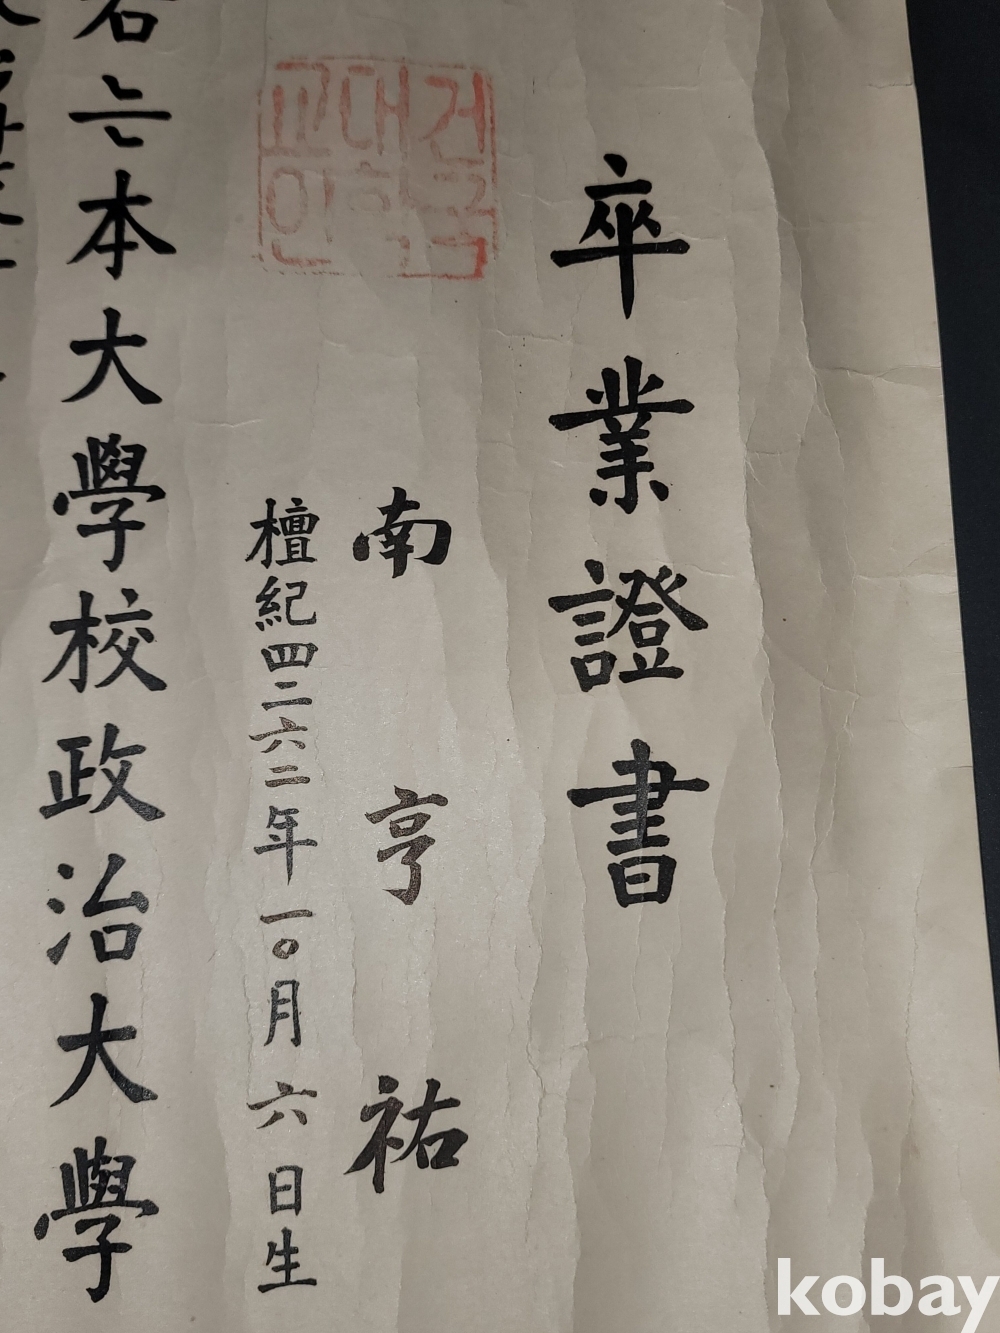 卒業證書
南亨祐
檀紀四二六二年一〇月六日生
건국
대학
교인
右는本大學校政治大學
kobay